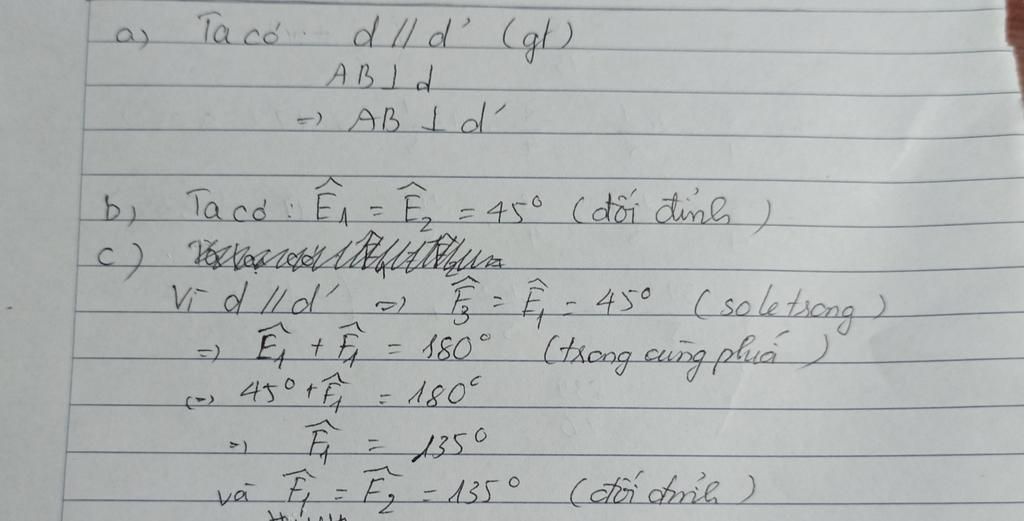 a) Ta có: d // d' (gt)
AB ⊥ d
=> AB ⊥ d'
b) Ta có: Ê1 = Ê2 = 45° (đối đỉnh)
c)
Vì d // d' => F̂3 = Ê1 = 45° (so le trong)
=> Ê1 + F̂1 = 180° (trong cùng phuá)
(=) 45° + F̂1 = 180°
=> F̂1 = 135°
và F̂1 = F̂2 = 135° (đối đỉnh)